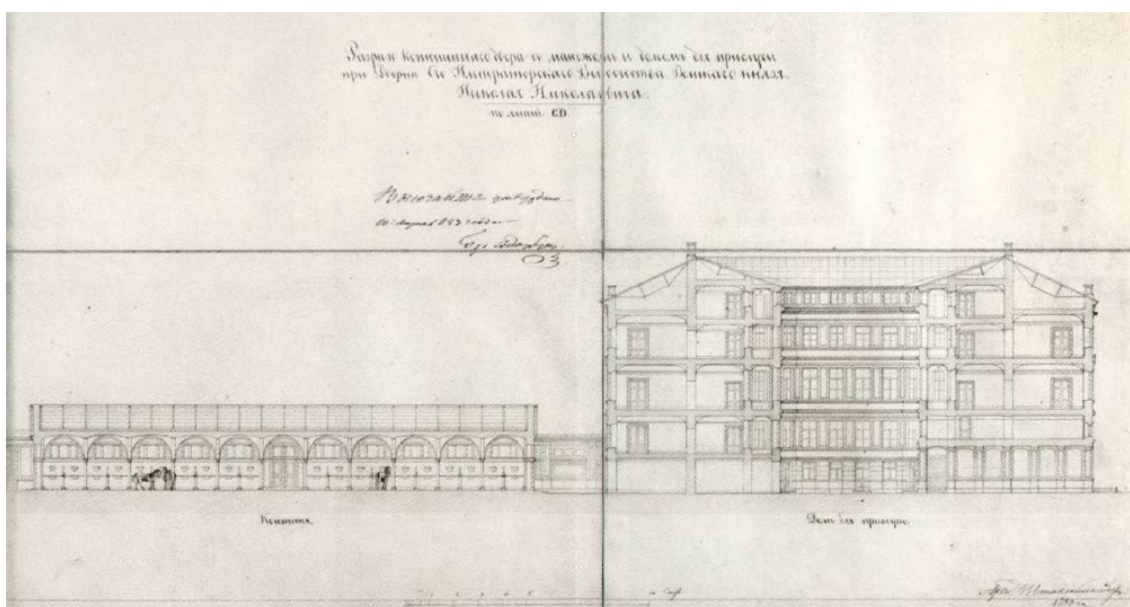 Разрѣзъ конюшеннаго двора съ манежемъ и домомъ для прислуги
при Дворцѣ Его Императорскаго Высочества Великаго Князя
Николая Николаевича.
по линіи CD.
Высочайше утверждено
10 марта 1853 года
Конюшня.
Домъ для прислуги.
Арх. Штакеншнейдеръ
1853